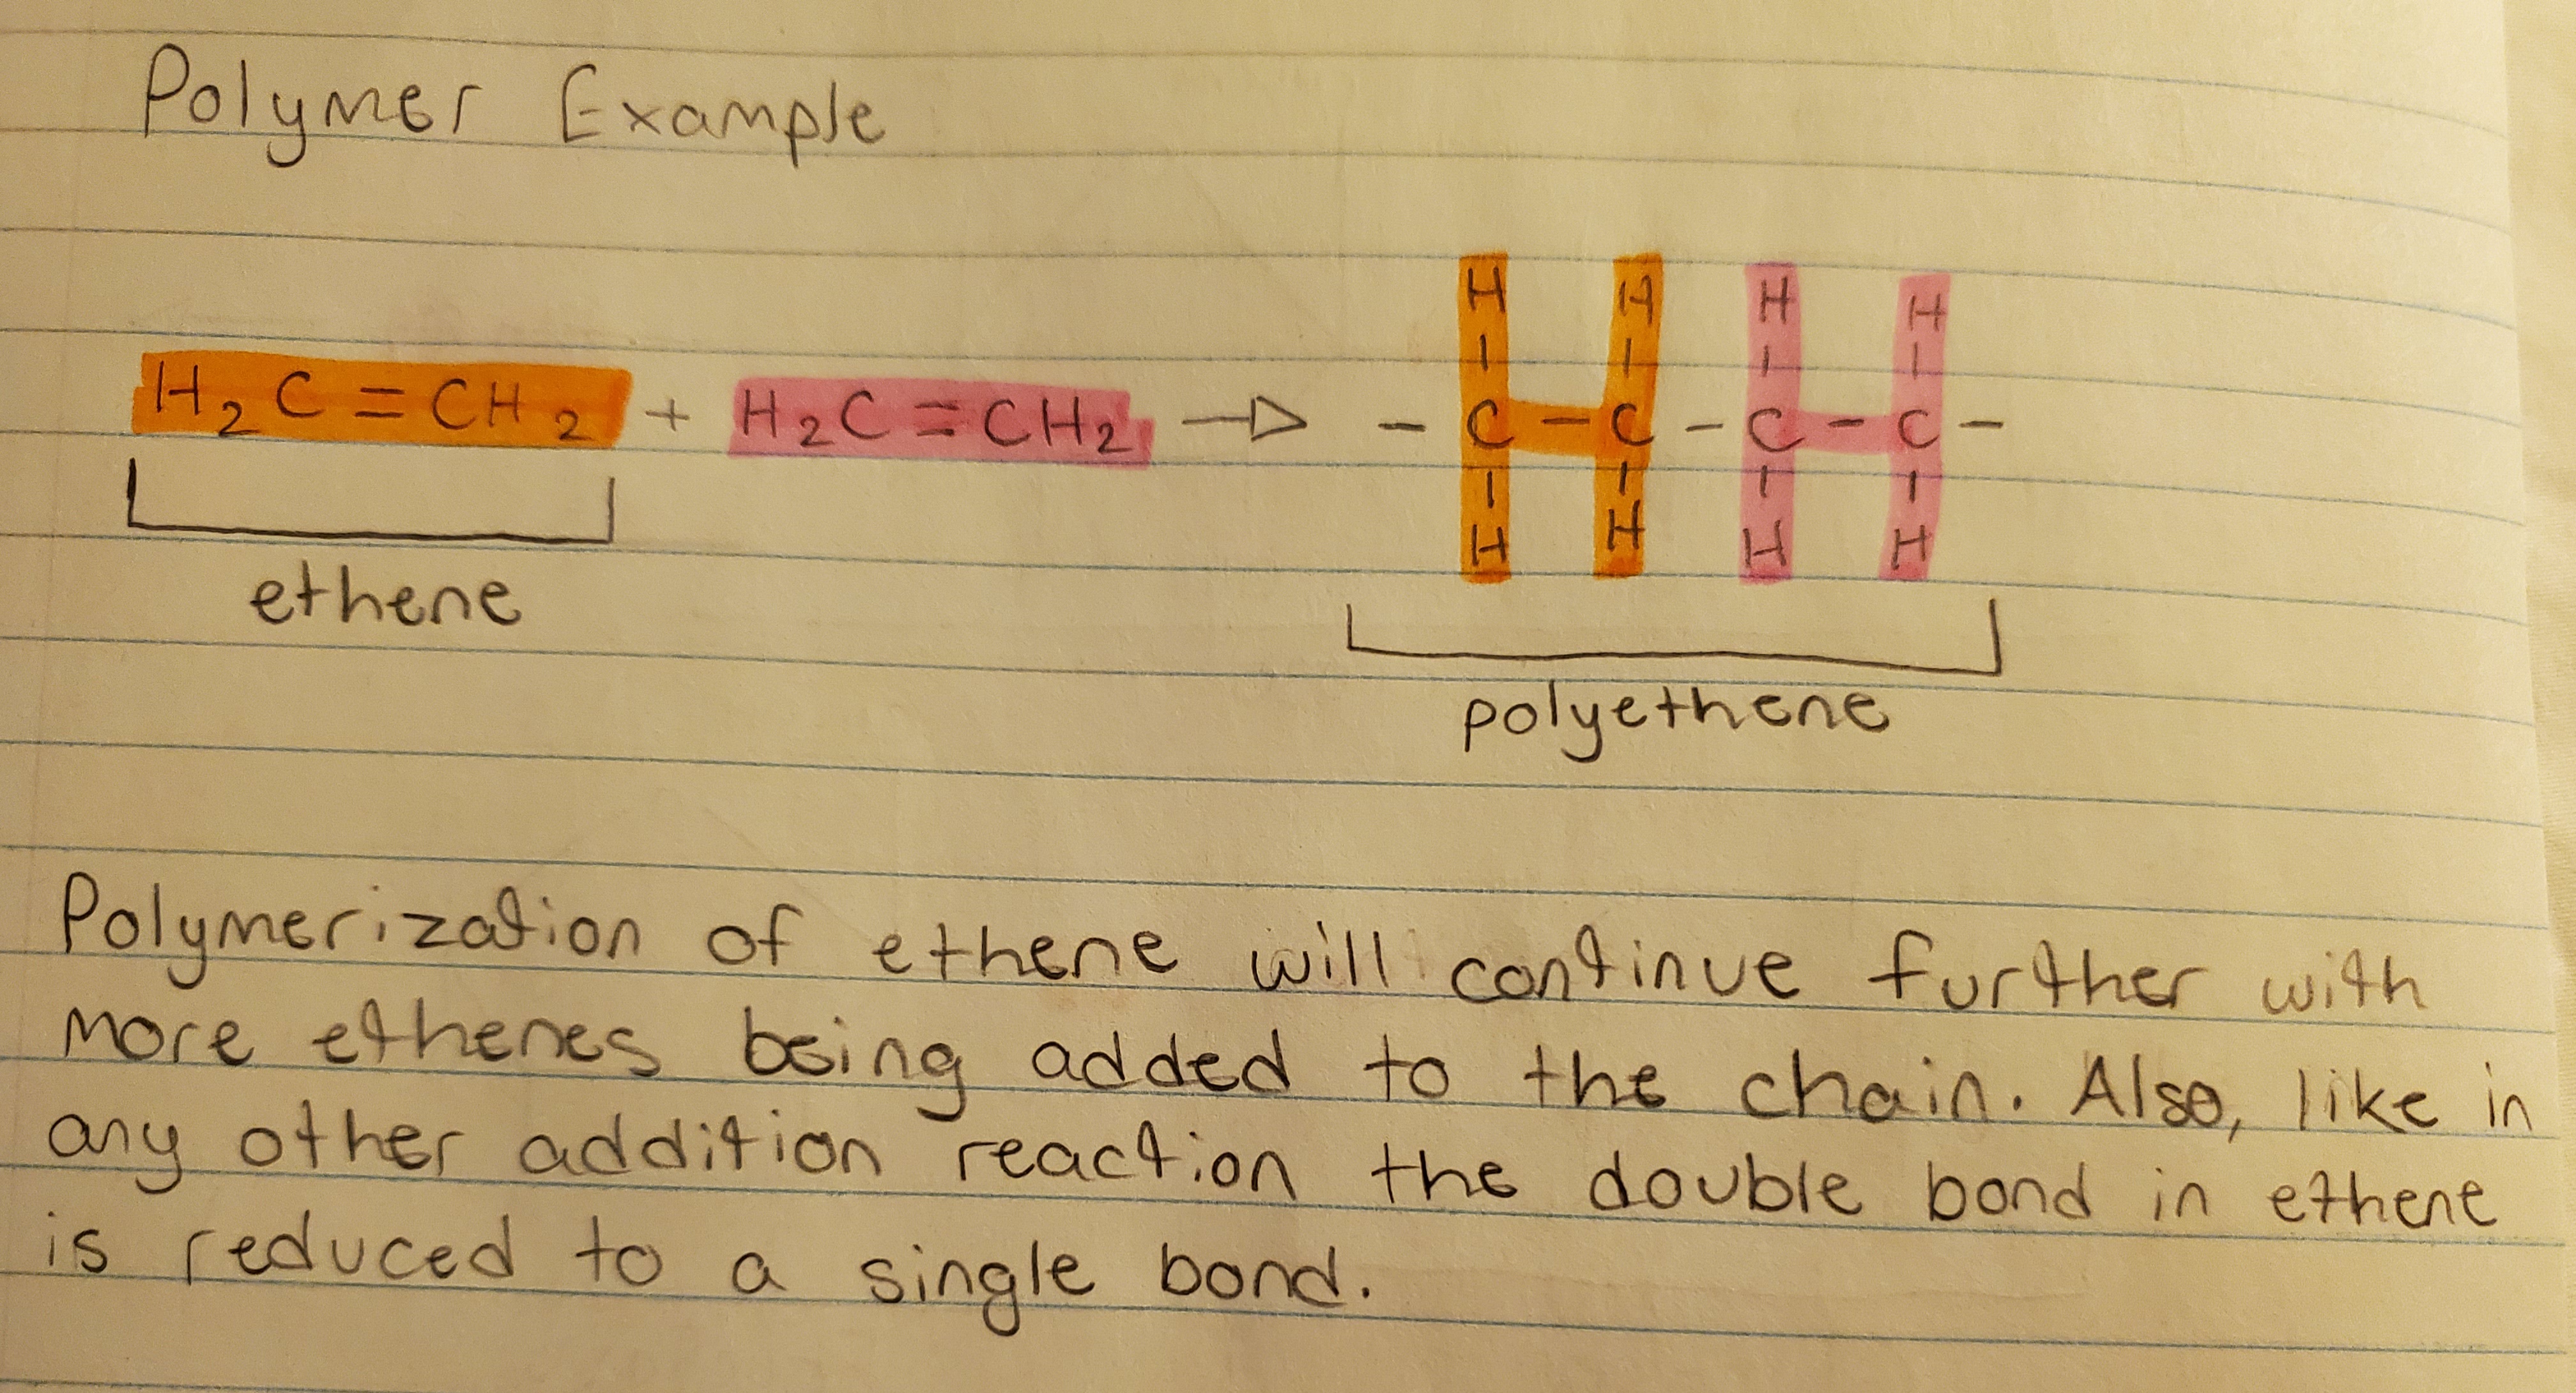 Polymer Example
H H H H
| | | |
H₂C=CH₂ + H₂C=CH₂ → -C-C-C-C-
| | | |
H H H H
ethene
polyethene
Polymerization of ethene will continue further with
more ethenes being added to the chain. Also, like in
any other addition reaction the double bond in ethene
is reduced to a single bond.